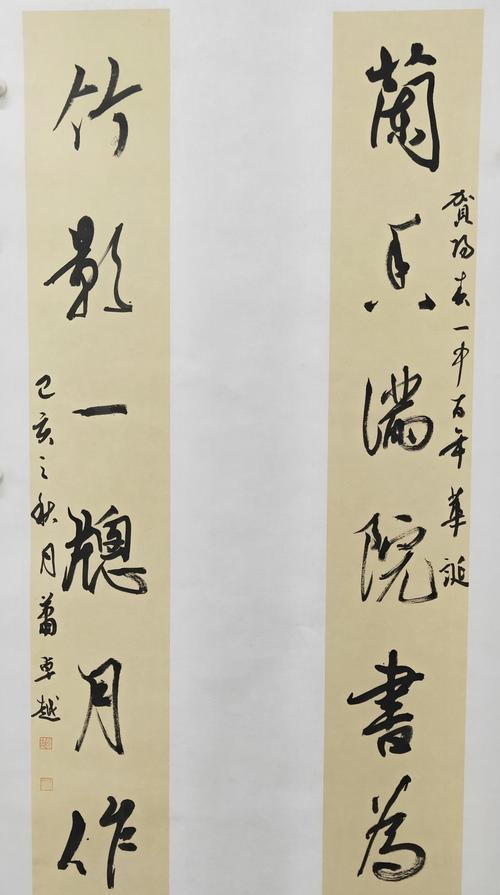 賀陽春一中百年華誕
蘭香滿院書為
竹影一窗月作
己亥之秋月蕭卓越